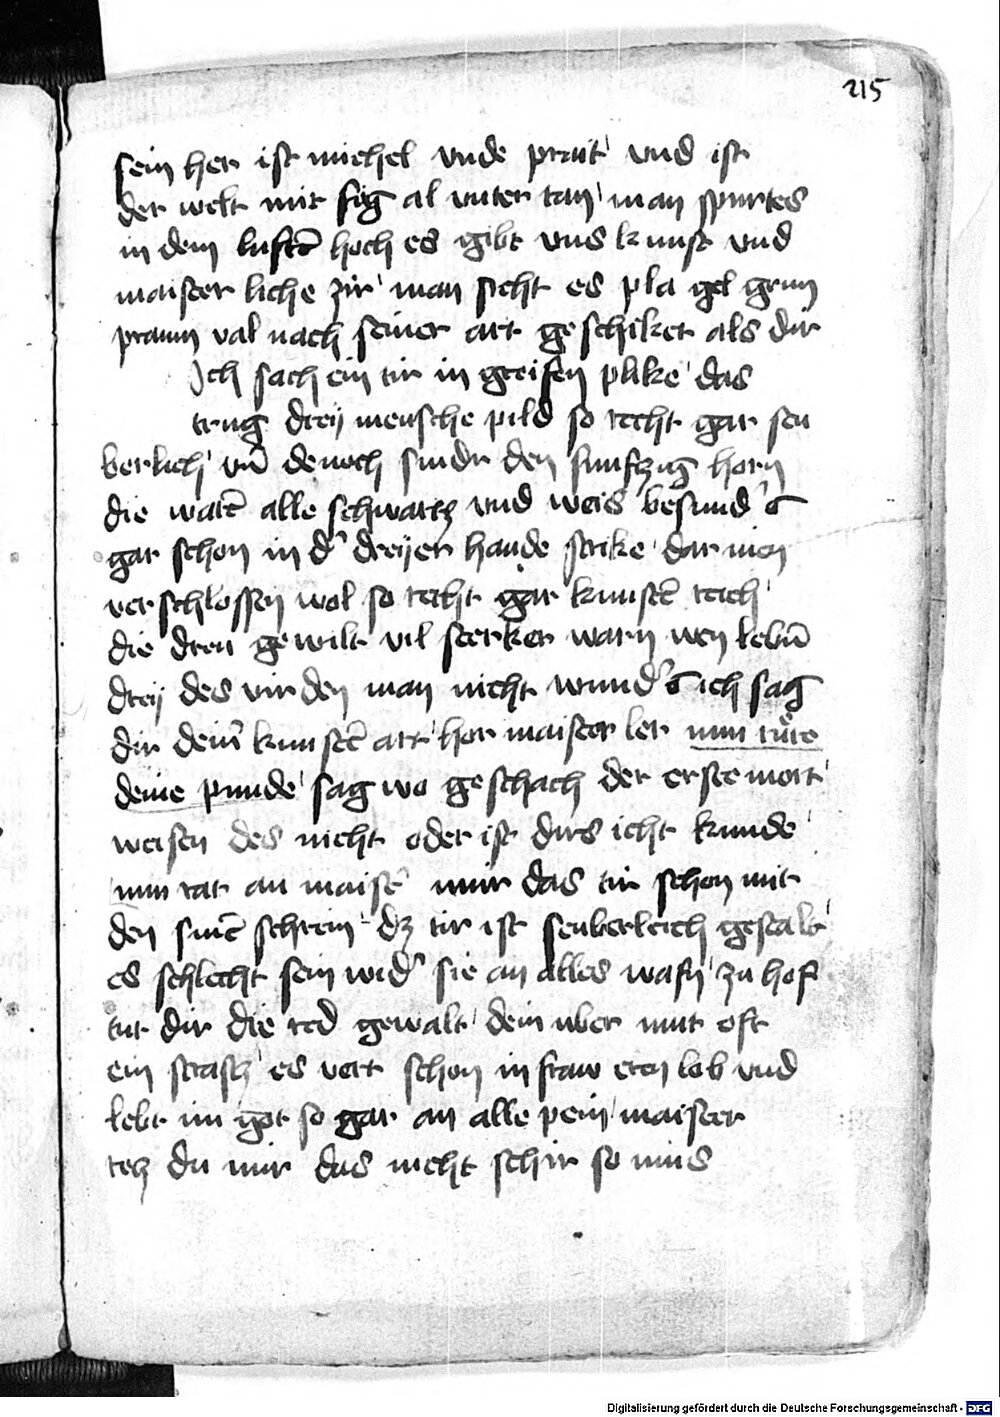 215
sein her ist michel vnde prait vnd ist
der welt mit fug al vnter tan man spurtes
in dem luftē hoch es gibt vns kunst vnd
maister liche zir man sicht es pla gel grun
praun val nach seiner art geschiket als dir
Ich sach ein tir in greifen plike das
trug dreij mensche pild so recht gar seu
berlich vn̄ denoch sindr den funfzig horn
die warē alle schwartz vnd weis besund̾
gar schon in d̾ dreijer hande strike dar inen
verschlossen wol so recht gar kunstē reich
die dreu gewilt vil sterker warn wen lebn̄
dreij des vinden man nicht wund̾ ich sag
dir dein̄ kunstē art hor maister ler nun rüre
deine punde sag wo geschach der erste mort
weisen des nicht oder ist dirs icht kunde
nun rat an maist̾ mir das tir schon mit
den sinē schrein dz tir ist seuberleich gestalt
es schlecht sein wid̾ sie an alles wafn zu hof
tut dir die red gewalt dein vber mut oft
ein strasz es vert schon in fraw eren lob vnd
lebt im got so gar an alle pein maister
retz du mir das nicht schir so mus
Digitalisierung gefördert durch die Deutsche Forschungsgemeinschaft - DFG